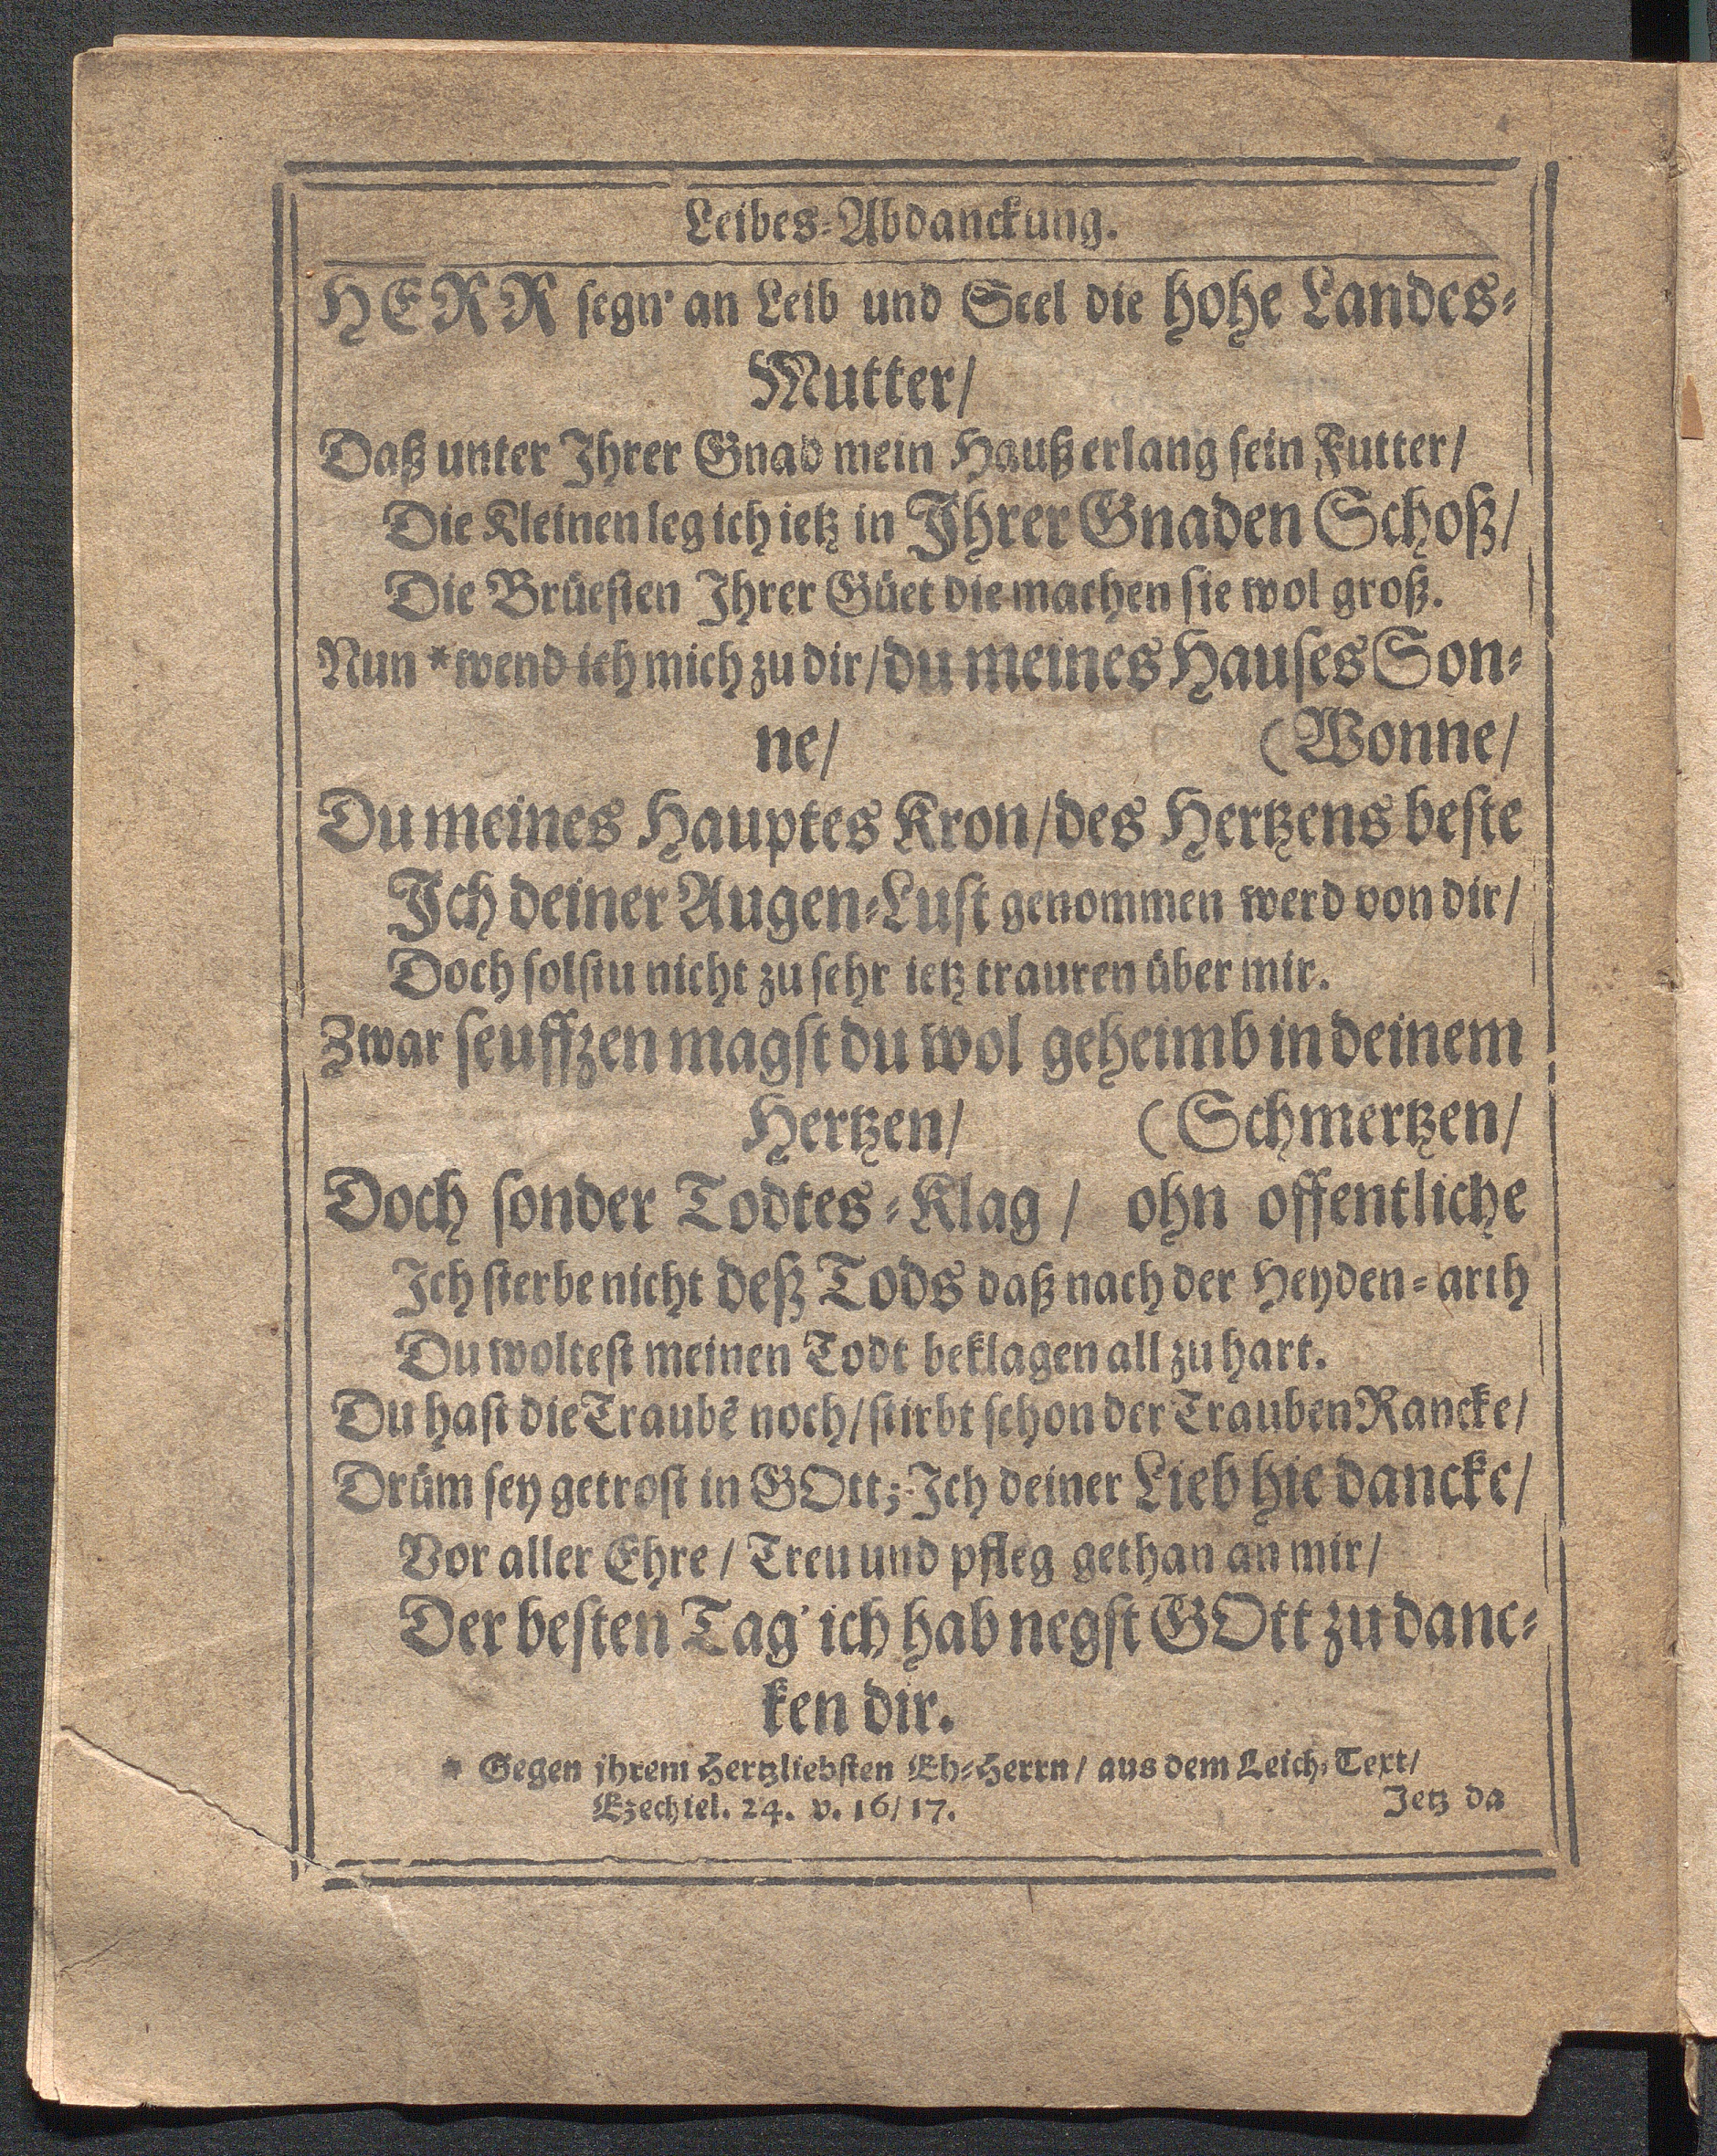 Leibes-Abdanckung.
HERR segn' an Leib und Seel die hohe Landes-
Mutter/
Daß unter Ihrer Gnad mein Hauß erlang sein Futter/
Die Kleinen leg ich ietz in Ihrer Gnaden Schoß/
Die Brüesten Ihrer Güet die machen sie wol groß.
Nun * wend ich mich zu dir/ du meines Hauses Son-
ne/ (Wonne/
Du meines Hauptes Kron/ des Hertzens beste
Ich deiner Augen-Lust genommen werd von dir/
Doch solstu nicht zu sehr ietz trauren über mir.
Zwar seuffzen magst du wol geheimb in deinem
Hertzen/ (Schmertzen/
Doch sonder Todtes-Klag / ohn offentliche
Ich sterbe nicht deß Tods daß nach der Heyden-arth
Du woltest meinen Todt beklagen all zu hart.
Du hast die Traubē noch/ stirbt schon der Trauben Rancke/
Drüm sey getrost in GOtt; Ich deiner Lieb hie dancke/
Vor aller Ehre / Treu und pfleg gethan an mir/
Der besten Tag' ich hab negst GOtt zu danc-
ken dir.
* Gegen ihrem Hertzliebsten Eh-Herrn/ aus dem Leich-Text/
Ezechiel. 24. v. 16/ 17. Jetz da